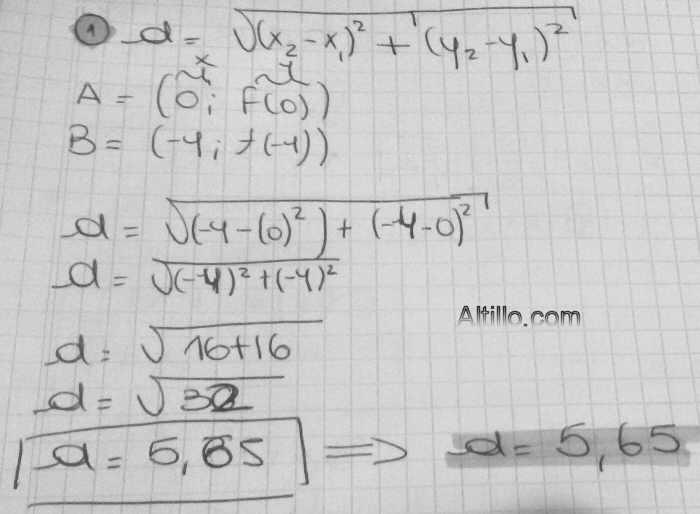 ① d = √(x₂ - x₁)² + (y₂ - y₁)²
x y
A = (0; F(0))
B = (-4; f(-4))
d = √(-4 - (0)²) + (-4 - 0)²
d = √(-4)² + (-4)²
Altillo.com
d = √16+16
d = √32
d = 5,65 => d = 5,65